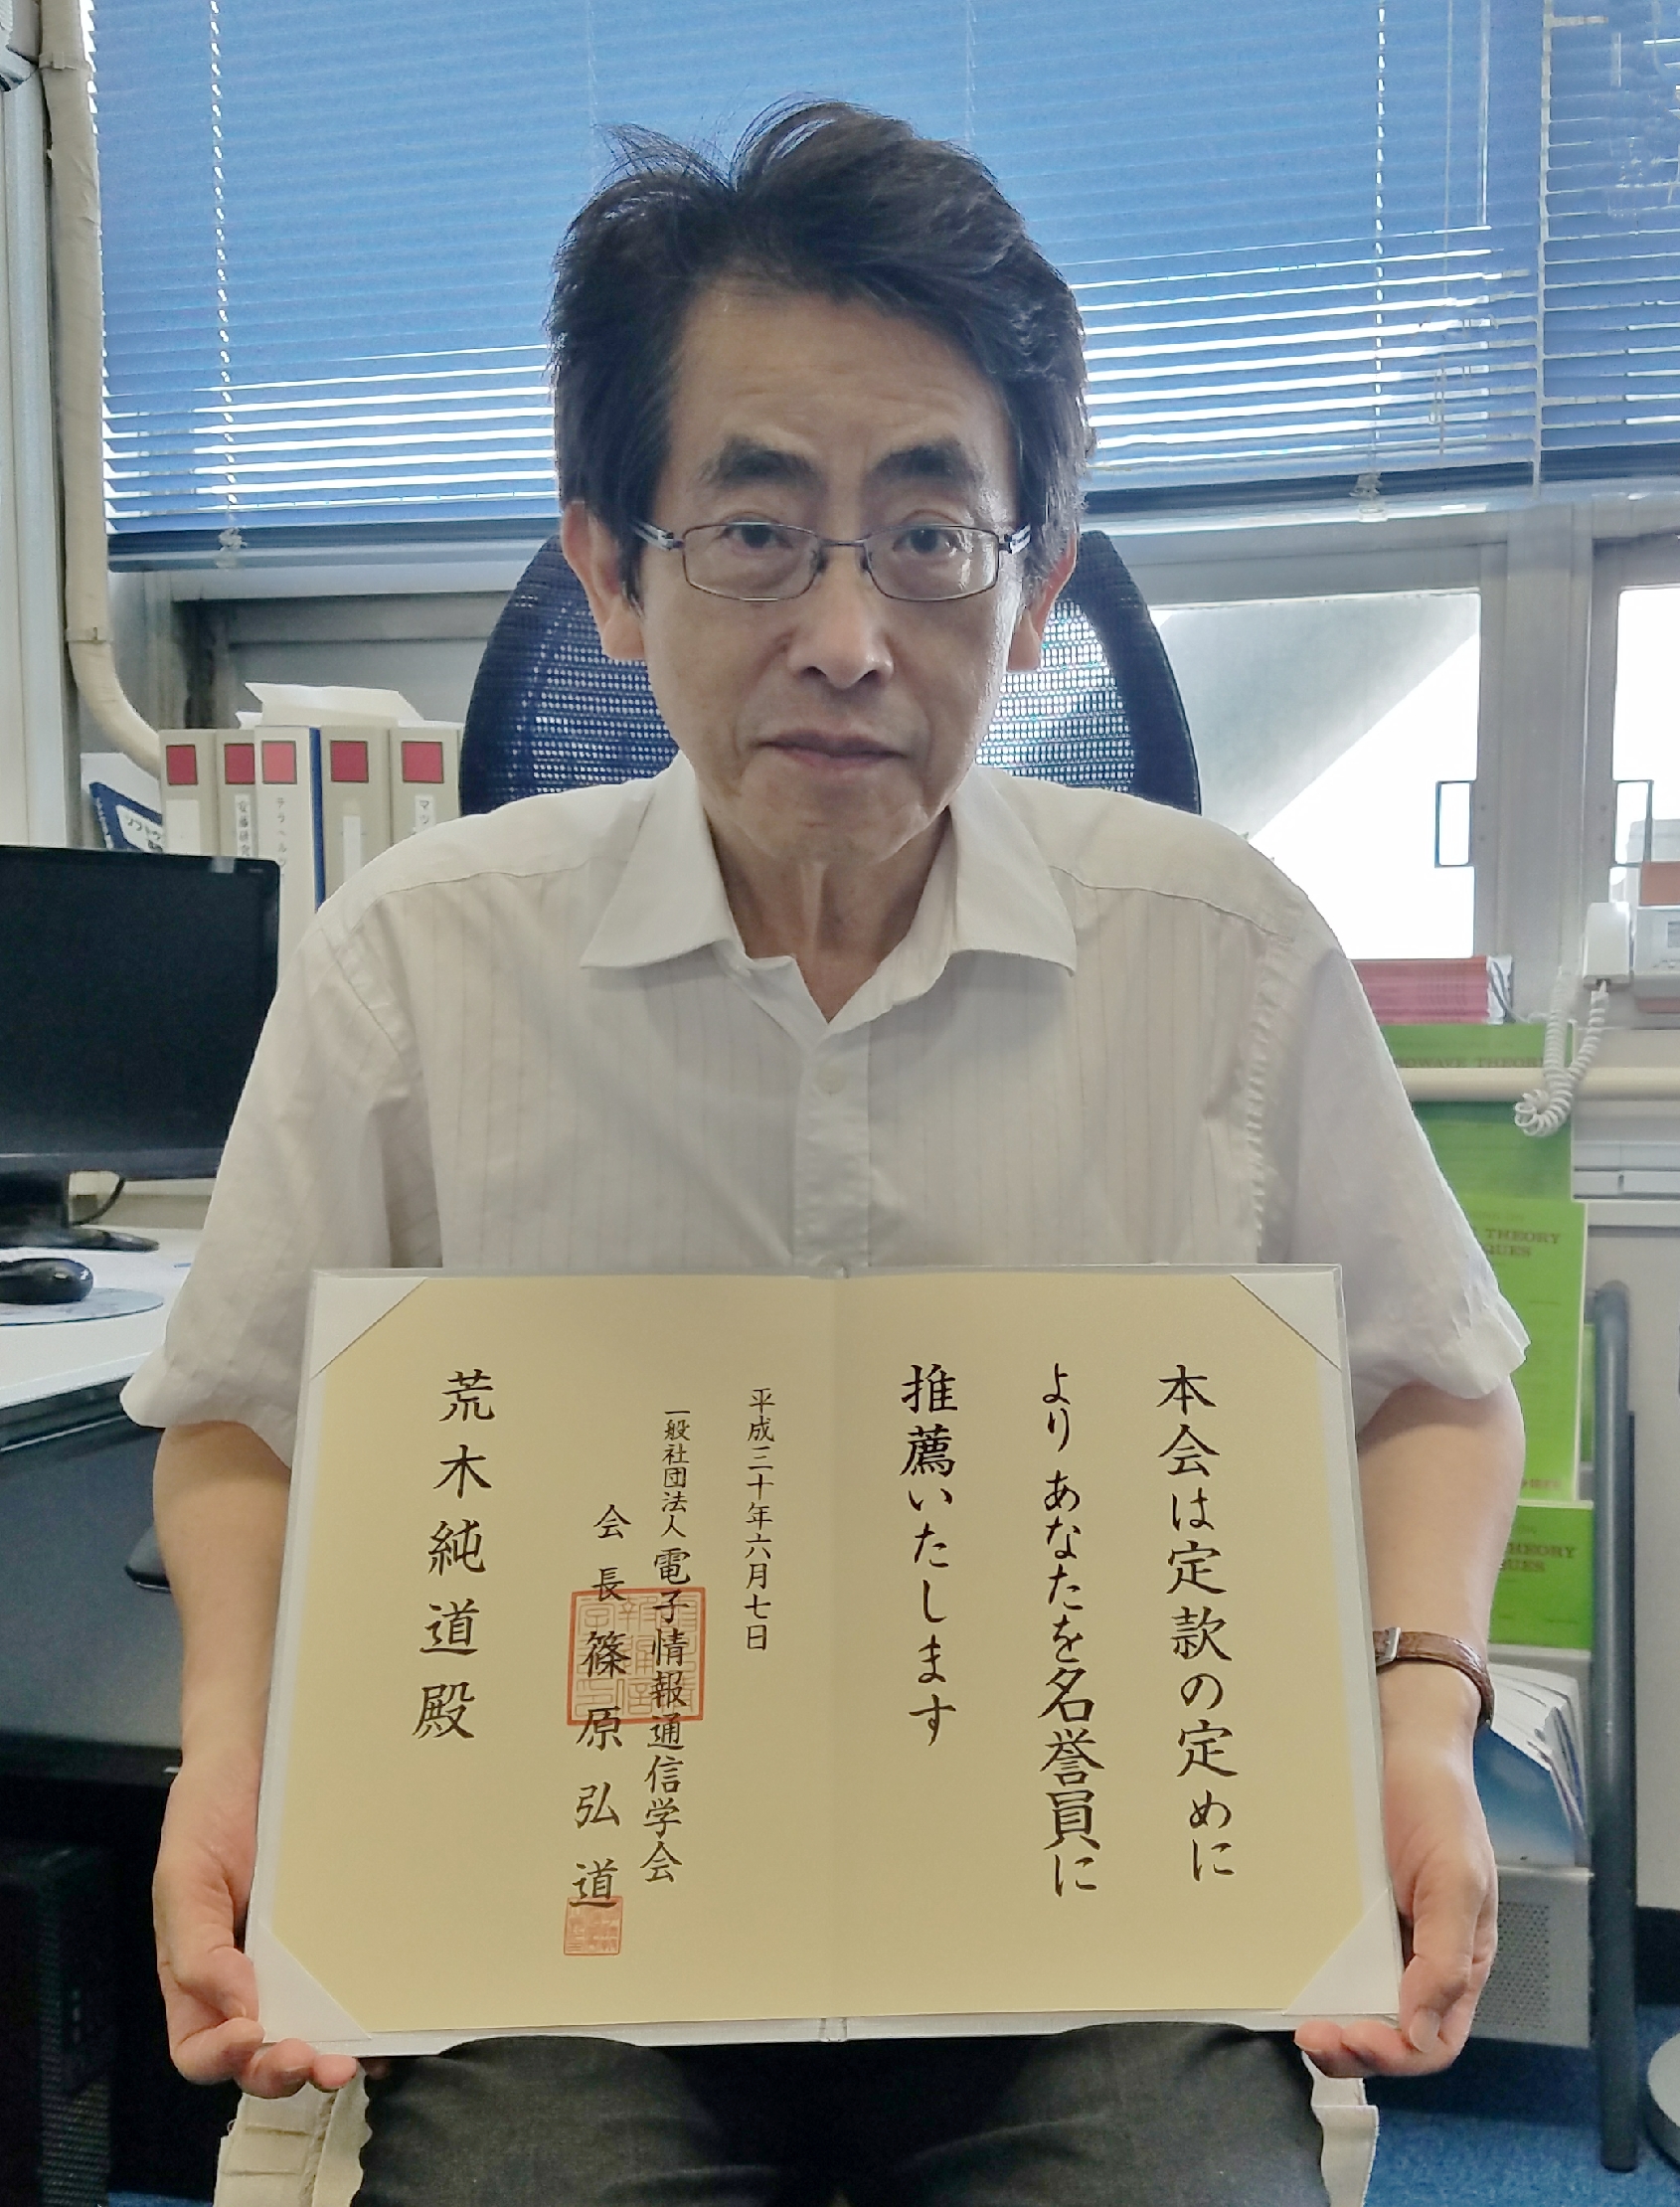 本会は定款の定めに
より あなたを名誉員に
推薦いたします
平成三十年六月七日
一般社団法人 電子情報通信学会
会長 篠原弘道
荒木純道殿
テラヘルツ
安藤研究
マツ
ソフトウ
THEORY
THEORY
THEORY